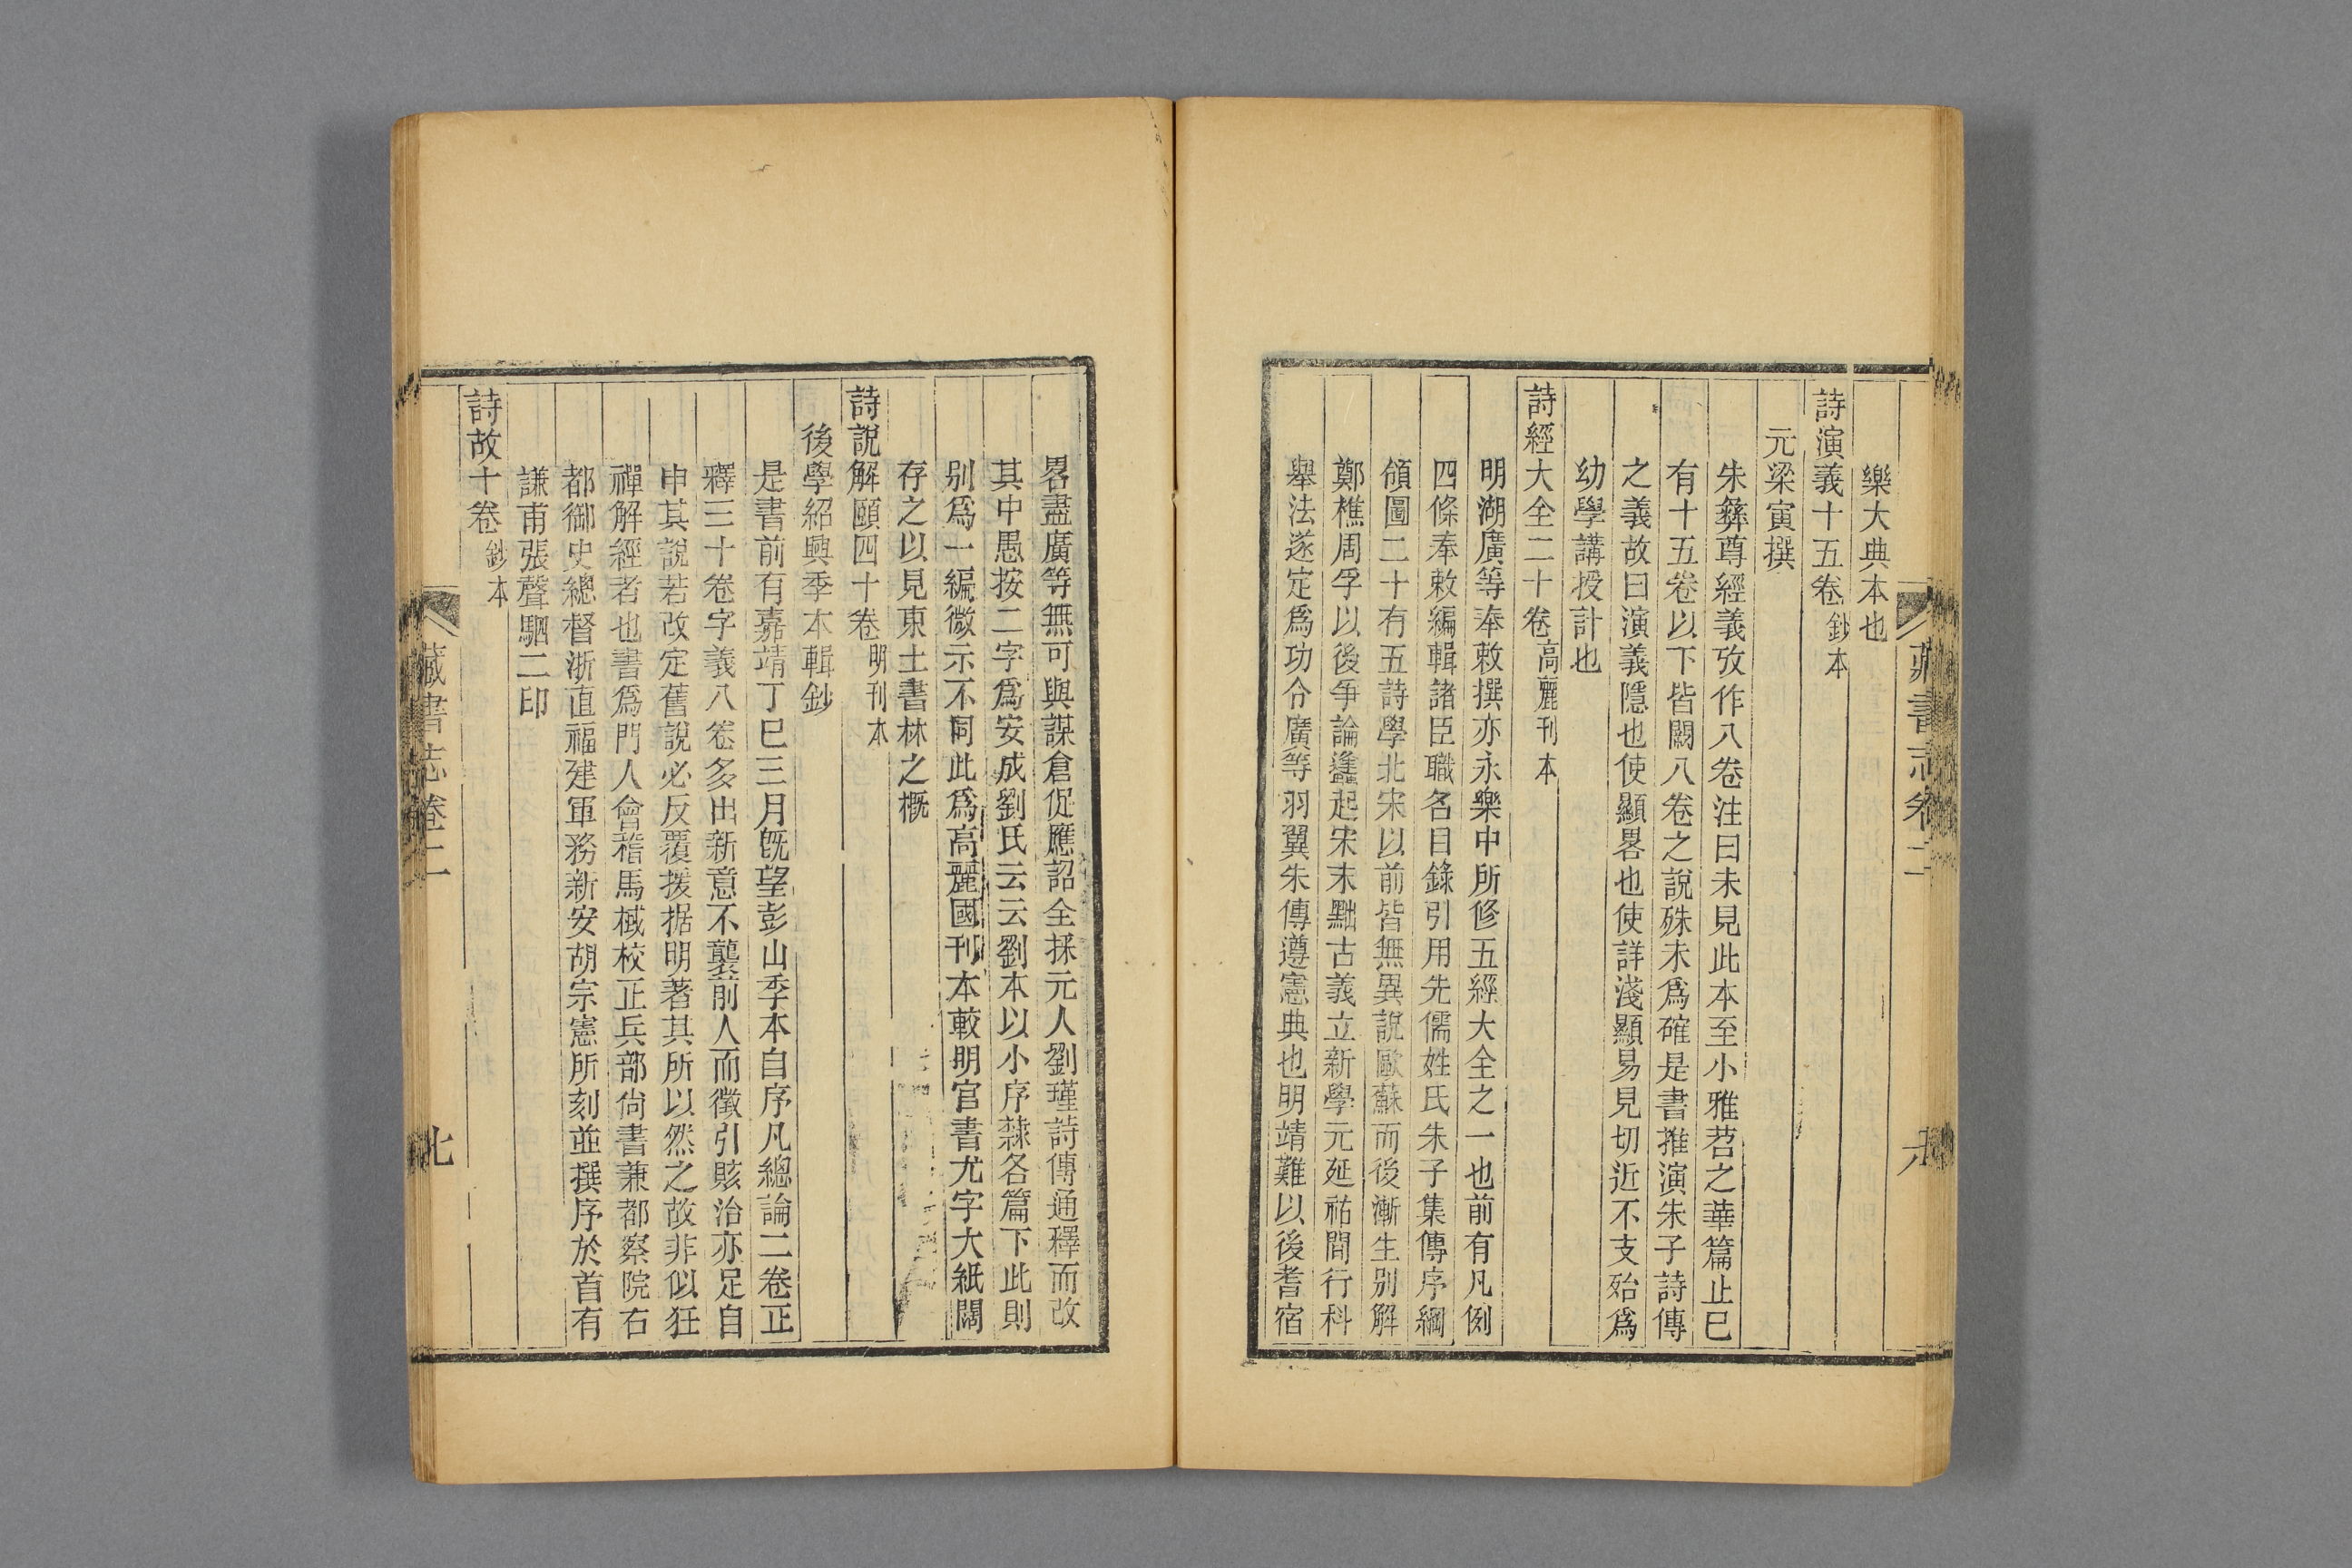 樂大典本也
詩演義十五卷 鈔本
元梁寅撰
朱彝尊經義攷作八卷注曰未見此本至小雅苕之華篇止已
有十五卷以下皆闕八卷之說殊未爲確是書推演朱子詩傳
之義故曰演義隱也使顯畧也使詳淺顯易見切近不支殆爲
幼學講授計也
詩經大全二十卷 高麗刊本
明湖廣等奉敕撰亦永樂中所修五經大全之一也前有凡例
四條奉敕編輯諸臣職名目錄引用先儒姓氏朱子集傳序綱
領圖二十有五詩學北宋以前皆無異說歐蘇而後漸生別解
鄭樵周孚以後爭論蠭起宋末黜古義立新學元延祐間行科
舉法遂定爲功令廣等羽翼朱傳遵憲典也明靖難以後耆宿
藏書志卷二
六
畧盡廣等無可與謀倉促應詔全採元人劉瑾詩傳通釋而改
其中愚按二字爲安成劉氏云云劉本以小序隸各篇下此則
別爲一編微示不同此爲高麗國刊本較明官書尤字大紙闊
存之以見東土書林之概
詩說解頤四十卷 明刊本
後學紹興季本輯鈔
是書前有嘉靖丁巳三月旣望彭山季本自序凡總論二卷正
釋三十卷字義八卷多出新意不襲前人而徵引賅洽亦足自
申其說若改定舊說必反覆援据明著其所以然之故非似狂
禪解經者也書爲門人會稽馬棫校正兵部尙書兼都察院右
都御史總督浙直福建軍務新安胡宗憲所刻並撰序於首有
謙甫張聲駰二印
詩故十卷 鈔本
藏書志卷二
七